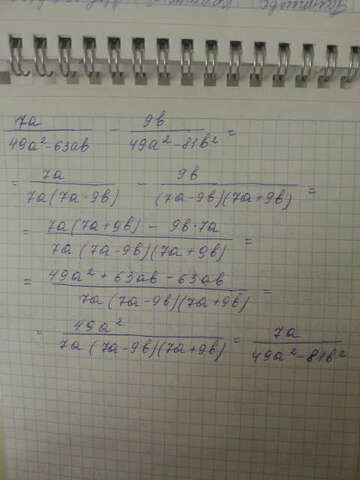 7a / 49a² - 63ab - 9b / 49a² - 81b² =
= 7a / 7a(7a-9b) - 9b / (7a-9b)(7a+9b) =
= 7a(7a+9b) - 9b·7a / 7a(7a-9b)(7a+9b) =
= 49a² + 63ab - 63ab / 7a(7a-9b)(7a+9b) =
= 49a² / 7a(7a-9b)(7a+9b) = 7a / 49a² - 81b²